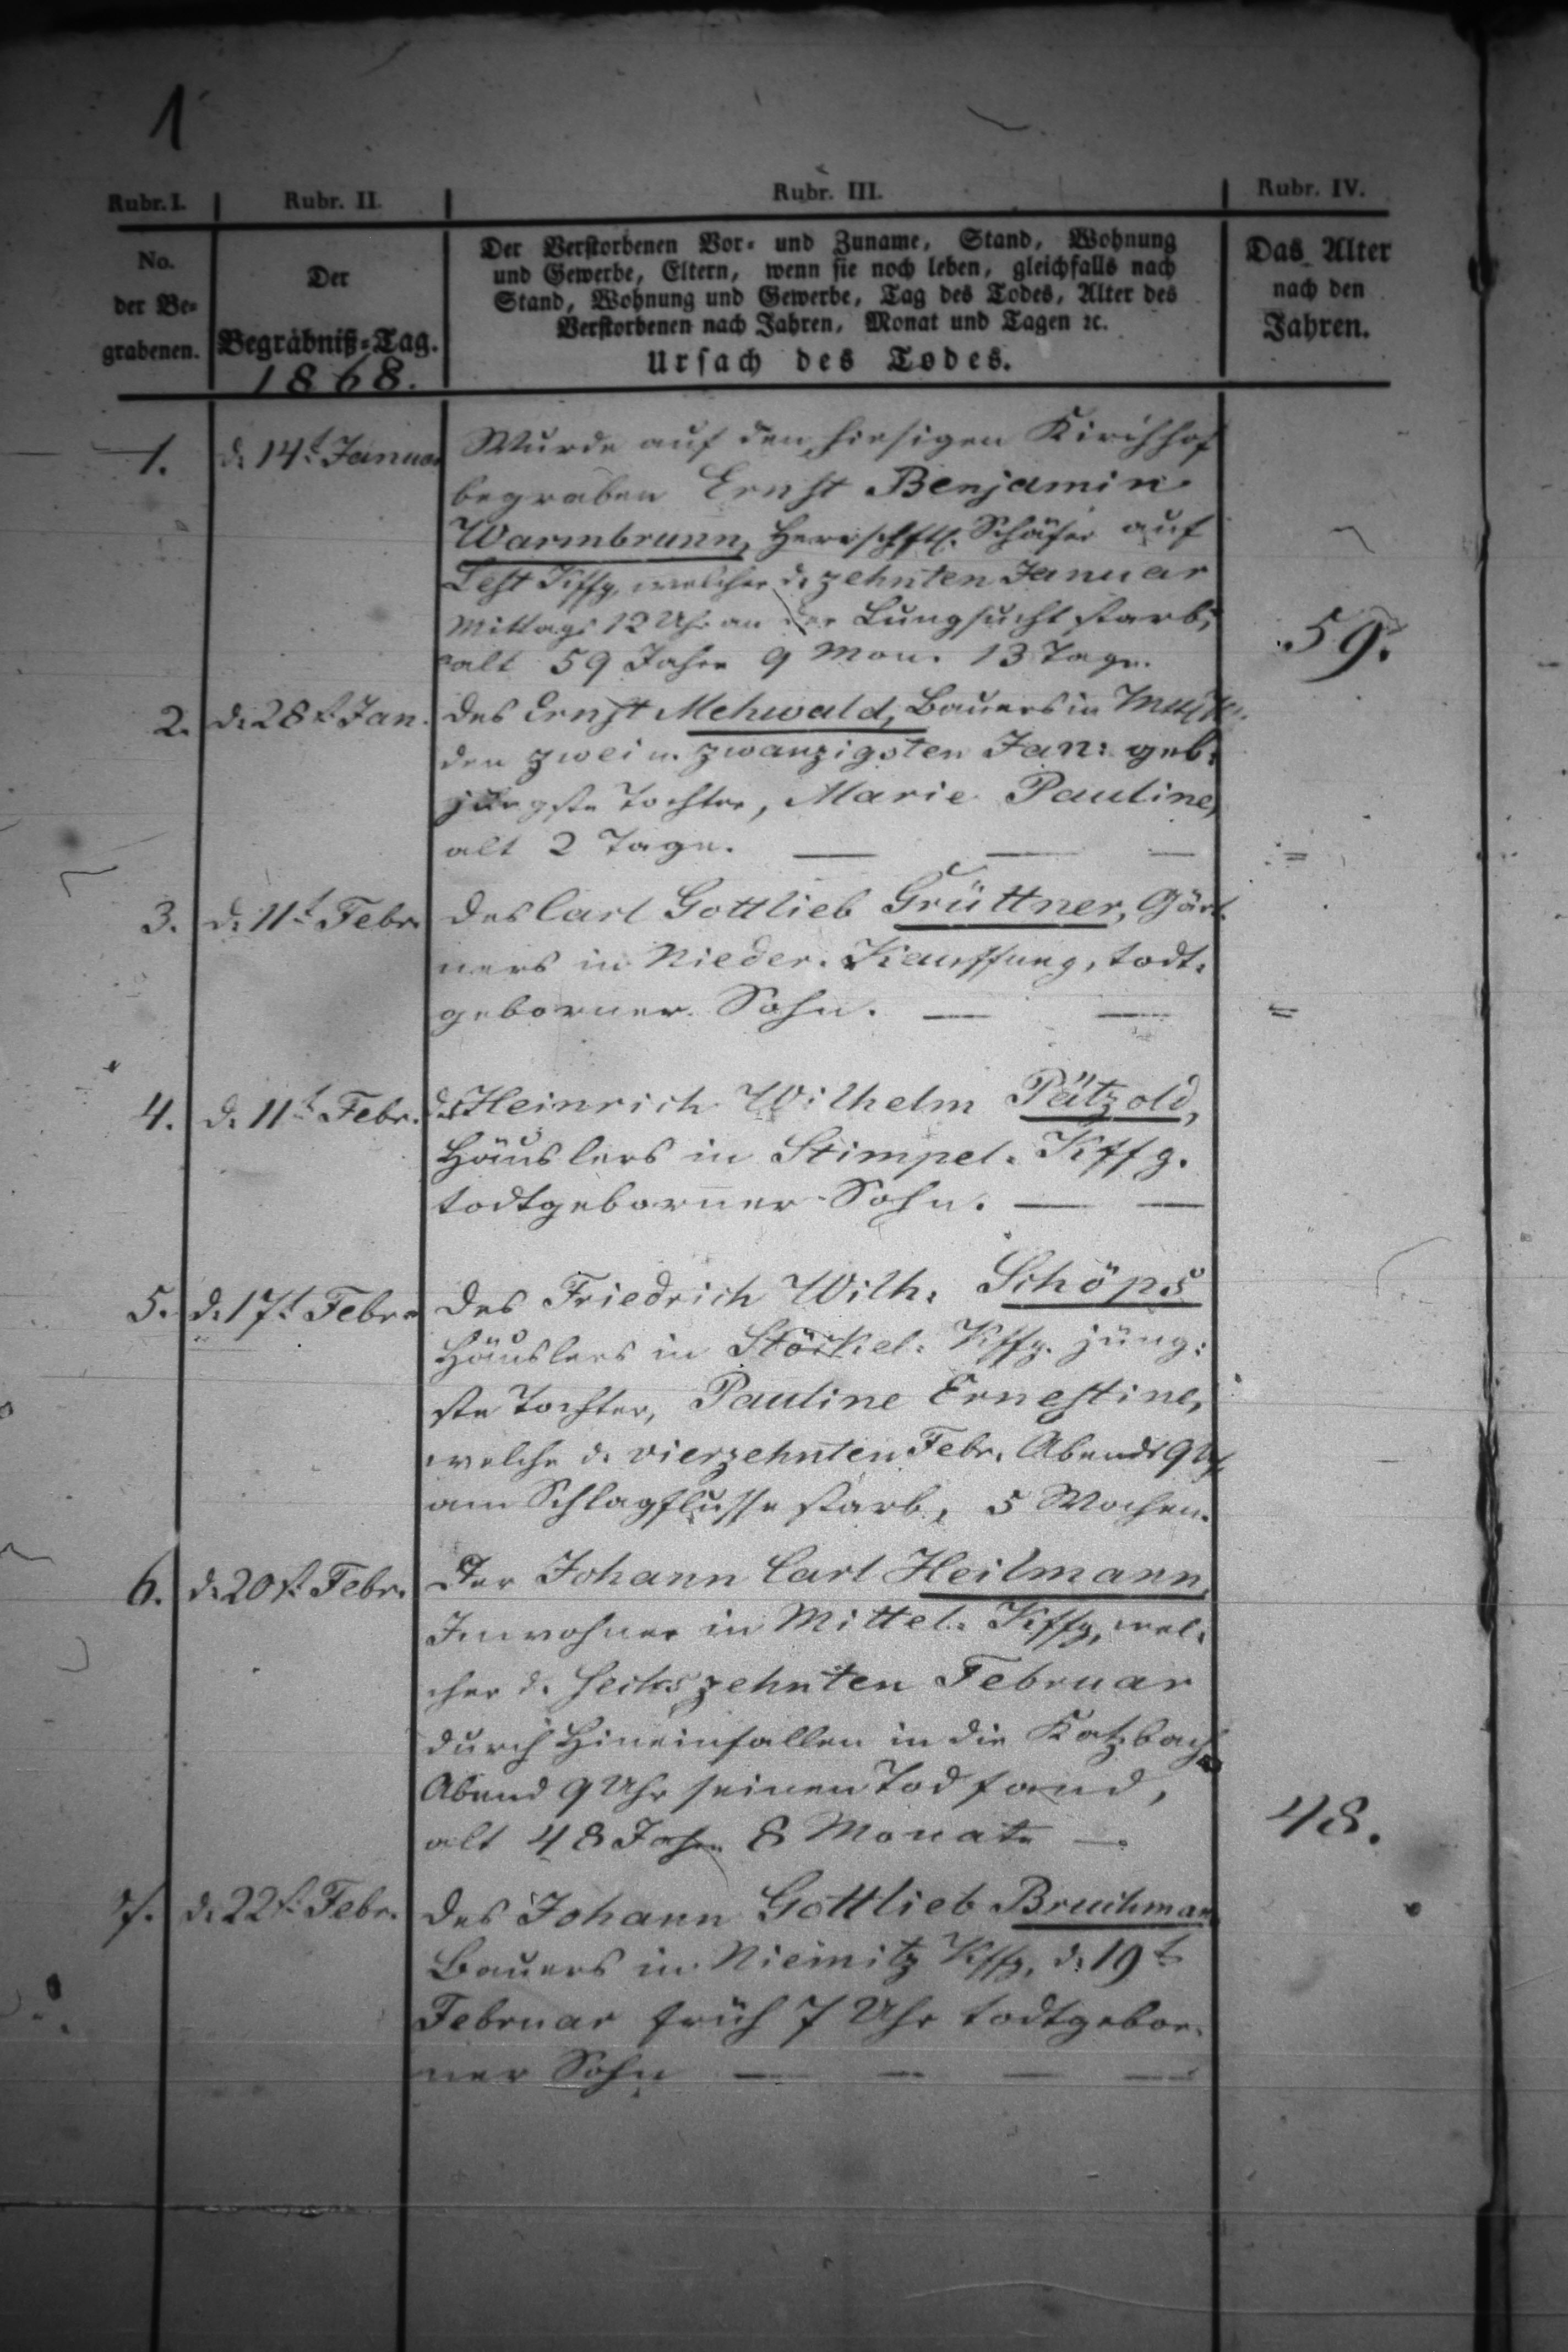 1
Rubr. I. Rubr. II. Rubr. III. Rubr. IV.
No.
der Be-
grabenen.
Der
Begräbniß-Tag.
1868.
Der Verstorbenen Vor- und Zuname, Stand, Wohnung
und Gewerbe, Eltern, wenn sie noch leben, gleichfalls nach
Stand, Wohnung und Gewerbe, Tag des Todes, Alter des
Verstorbenen nach Jahren, Monat und Tagen ꝛc.
Ursach des Todes.
Das Alter
nach den
Jahren.
1. d. 14t Januar Wurde auf den hiesigen Kirchhof
begraben Ernst Benjamin
Warmbrunn, Herrschftl. Schäfer auf
Lest Kffg, welcher d. zehnten Januar
Mittags 12 Uhr an der Lungsucht starb,
alt 59 Jahre 9 Mon. 13 Tage. 59.
2. d. 28t Jan. des Ernst Mehwald, Bauers in
den zwei u. zwanzigsten Jan: geb.
jüngste Tochter, Marie Pauline,
alt 2 Tage. — — — =
3. d. 11t Febr. des Carl Gottlieb Grüttner, Gärt-
ners in Nieder-Kauffung, todt-
geborner Sohn. — — =
4. d. 11t Febr. des Heinrich Wilhelm Pätzold,
Häuslers in Stimpel-Kffg.
todtgeborner Sohn. — —
5. d. 17t Febr. des Friedrich Wilh. Schöps
Häuslers in Stöckel-Kffg. jüng-
ste Tochter, Pauline Ernestine,
welche d. vierzehnten Febr. Abends 9 Uh.
am Schlagflusse starb, 5 Wochen.
6. d. 20t Febr. Der Johann Carl Heilmann,
Inwohner in Mittel-Kffg, wel-
cher d. sechszehnten Februar
durch Hineinfallen in die Katzbach
Abend 9 Uhr seinen Tod fand,
alt 48 Jahr 8 Monate — 48.
7. d. 22t Febr. des Johann Gottlieb Bruchmann
Bauers in Niemitz Kffg, d. 19t
Februar früh 7 Uhr todtgebor-
ner Sohn — — — —